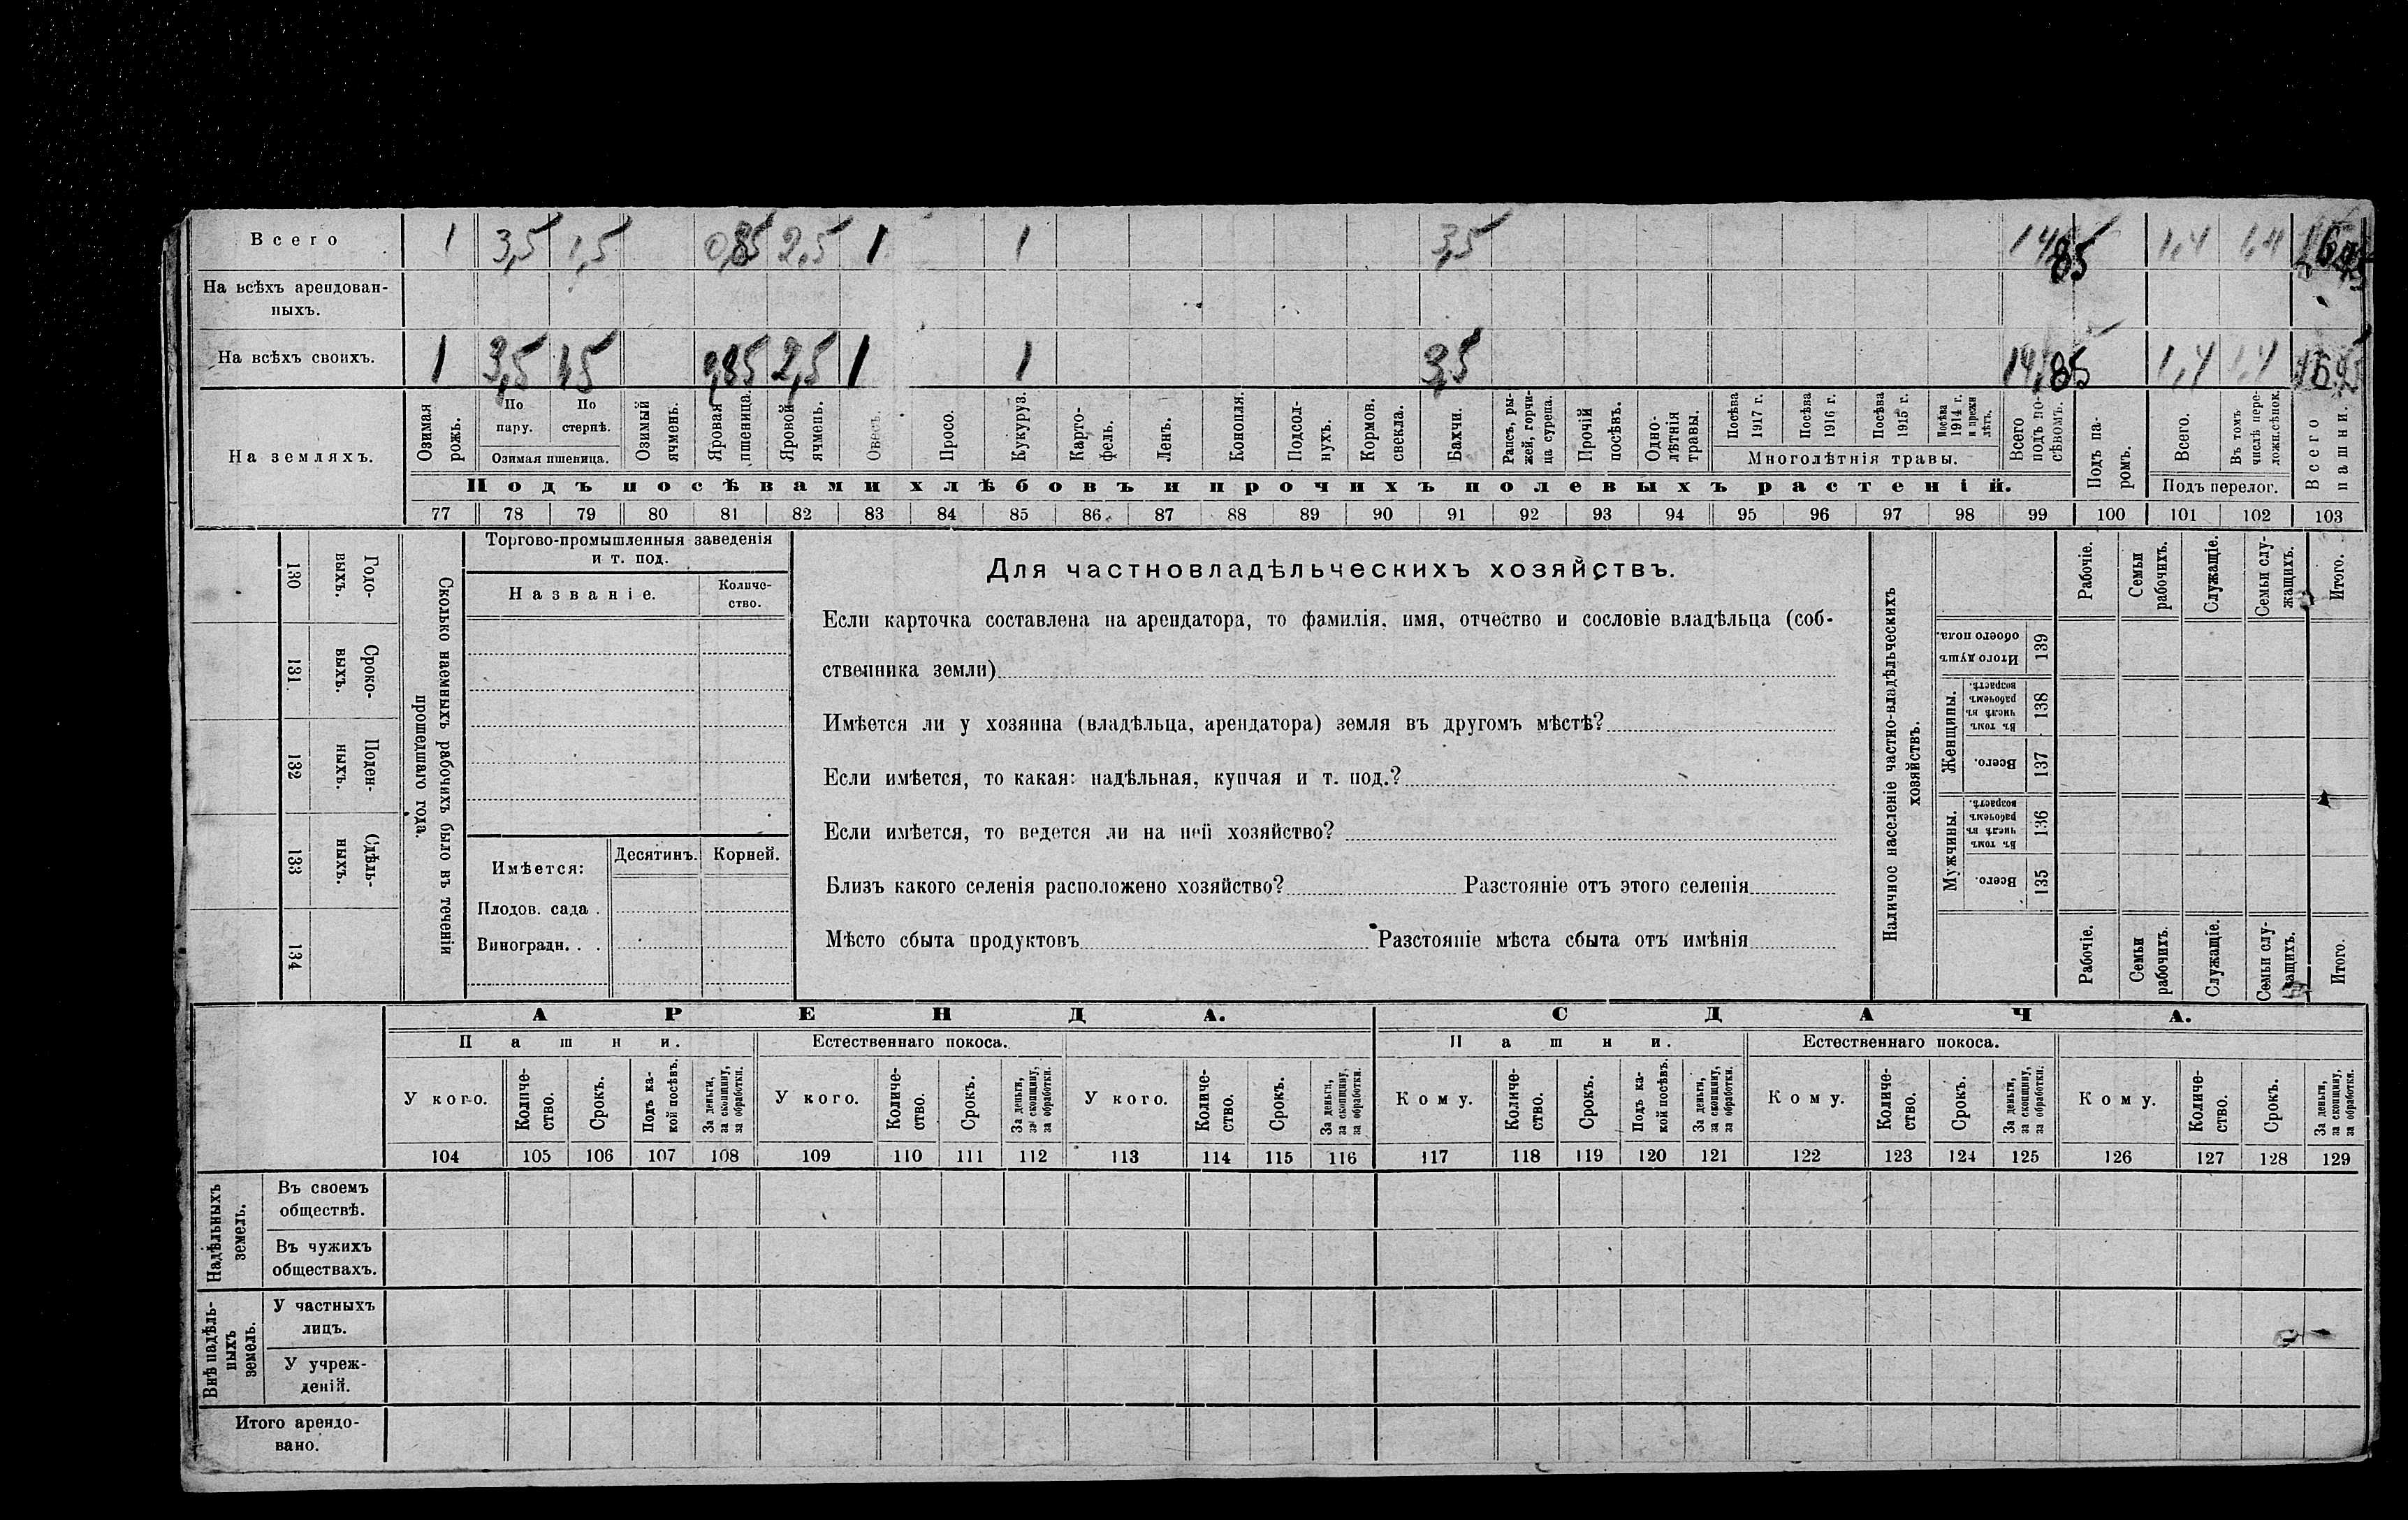 Всего 1 3,5 1,5 0,85 2,5 1 1 3,5 14,85 1,4 1,4
На всѣхъ арендован-
ныхъ.
На всѣхъ своихъ. 1 3,5 1,5 0,85 2,5 1 1 3,5 14,85 1,4 1,4
На земляхъ.
Озимая рожь.
По пару.
По стернѣ.
Озимая пшеница.
Озимый ячмень.
Яровая пшеница.
Яровой ячмень.
Овесъ.
Просо.
Кукуруз.
Карто-
фель.
Ленъ.
Конопля.
Подсол-
нухъ.
Кормов. свекла.
Бахчи.
Рапсъ, ры-
жей, горчи-
ца сурепа.
Прочій посѣвъ.
Одно-
лѣтнія травы.
Посѣва 1917 г.
Посѣва 1916 г.
Посѣва 1915 г.
Посѣва 1914 г. и прежн лѣтъ.
Многолѣтнія травы.
Всего подъ по-
сѣвомъ.
Подъ па-
ромъ.
Всего.
Въ томъ числѣ пере-
ложн.сѣнок.
Подъ перелог.
Всего пашни.
Подъ посѣвами хлѣбовъ и прочихъ полевыхъ растеній.
77 78 79 80 81 82 83 84 85 86 87 88 89 90 91 92 93 94 95 96 97 98 99 100 101 102 103
130 Годо-
выхъ.
131 Сроко-
выхъ.
132 Поден-
ныхъ.
133 Сдѣль-
ныхъ.
134
Сколько наемныхъ рабочихъ было въ теченіи
прошедшаго года.
Торгово-промышленныя заведенія
и т. под.
Названіе. Количе-
ство.
Имѣется: Десятинъ. Корней.
Плодов. сада .
Виноградн. . .
Для частновладѣльческихъ хозяйствъ.
Если карточка составлена на арендатора, то фамилія, имя, отчество и сословіе владѣльца (соб-
ственника земли)
Имѣется ли у хозяина (владѣльца, арендатора) земля въ другомъ мѣстѣ?
Если имѣется, то какая: надѣльная, купчая и т. под.?
Если имѣется, то ведется ли на ней хозяйство?
Близъ какого селенія расположено хозяйство? Разстояніе отъ этого селенія
Мѣсто сбыта продуктовъ Разстояніе мѣста сбыта отъ имѣнія
Наличное населеніе частно-владѣльческихъ
хозяйствъ.
Рабочіе.
Семьи рабочихъ.
Служащіе.
Семьи слу-
жащихъ.
Итого.
Итого душъ обоего пола. 139
Женщины.
Въ томъ числѣ въ рабочемъ возрастѣ. 138
Всего. 137
Мужчины.
Въ томъ числѣ въ рабочемъ возрастѣ. 136
Всего. 135
Рабочіе.
Семьи рабочихъ.
Служащіе.
Семьи слу-
жащихъ.
Итого.
АРЕНДА. СДАЧА.
Пашни. Естественнаго покоса. Пашни. Естественнаго покоса.
У кого.
Количе-
ство.
Срокъ.
Подъ ка-
кой посѣвъ.
За деньги,
за скопщину,
за обработки.
У кого.
Количе-
ство.
Срокъ.
За деньги,
за скопщину,
за обработки.
У кого.
Количе-
ство.
Срокъ.
За деньги,
за скопщину,
за обработки.
Кому.
Количе-
ство.
Срокъ.
Подъ ка-
кой посѣвъ.
За деньги,
за скопщину,
за обработки.
Кому.
Количе-
ство.
Срокъ.
За деньги,
за скопщину,
за обработки.
Кому.
Количе-
ство.
Срокъ.
За деньги,
за скопщину,
за обработки.
104 105 106 107 108 109 110 111 112 113 114 115 116 117 118 119 120 121 122 123 124 125 126 127 128 129
Надѣльныхъ
земель.
Въ своемъ
обществѣ.
Въ чужихъ
обществахъ.
Внѣ надѣль-
ныхъ
земель.
У частныхъ
лицъ.
У учреж-
деній.
Итого арендо-
вано.